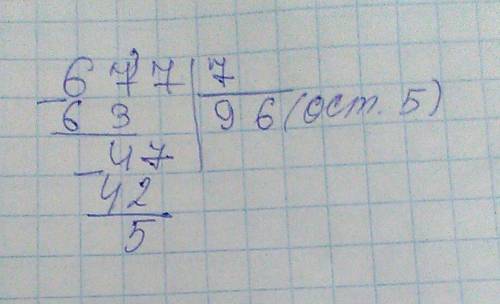 677 | 7
- 63 | 96 (ост. 5)
- 47
42
5